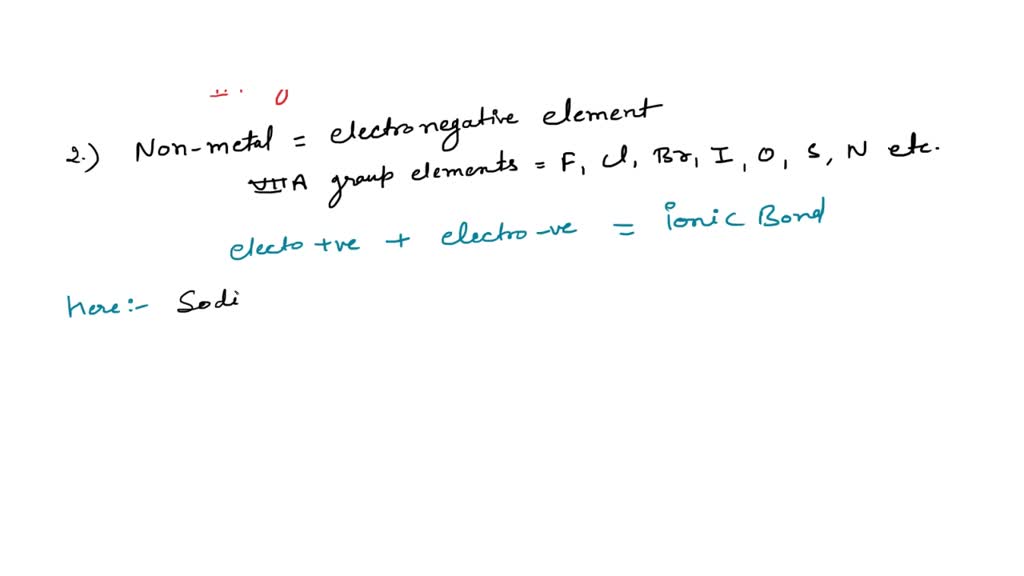 2.) Non-metal = electronegative element
VIIA group elements = F, Cl, Br, I, O, S, N etc.
electo +ve + electro -ve = ionic Bond
here:- Sodi